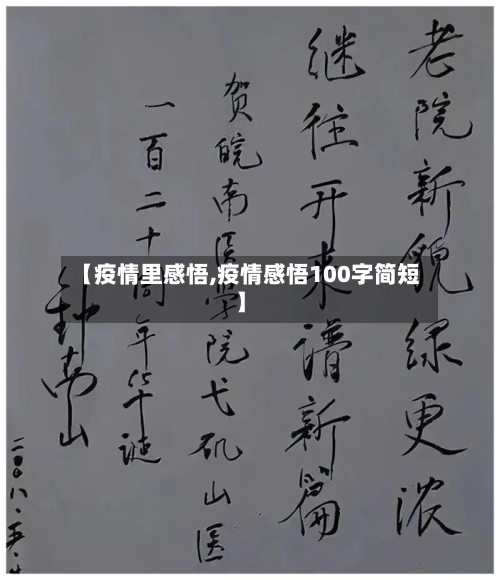 老院新貌绿更浓
继往开来谱新篇
贺皖南医学院弋矶山医
一百二十周年华诞
钟南山
【疫情里感悟,疫情感悟100字简短
】